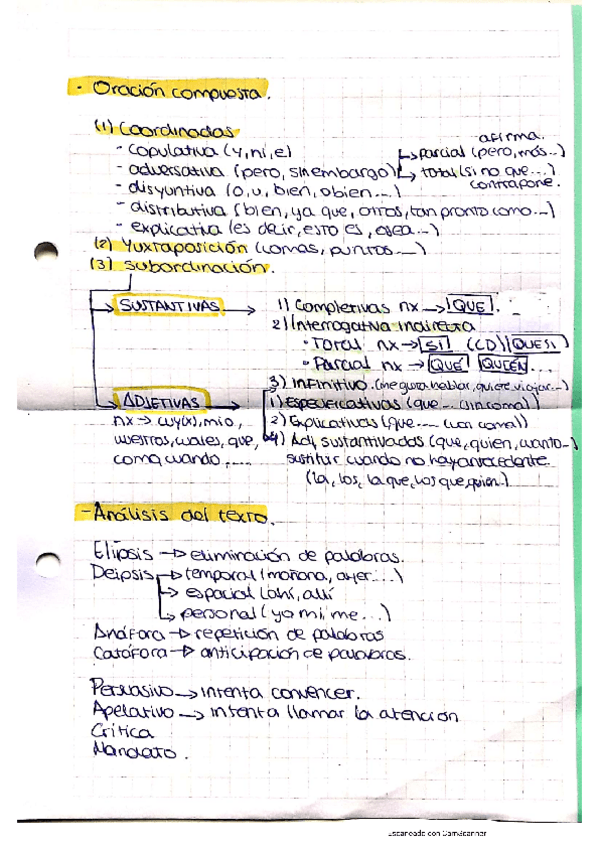 · Oración compuesta.
(1) Coordinadas
afirma.
- copulativa (y, ni, e)
parcial (pero, más...)
- adversativa (pero, sin embargo)
total (si no que...)
contrapone.
- disyuntiva (o, u, bien, o bien...)
- distributiva (bien, ya que, otros, tan pronto como...)
- explicativa (es decir, esto es, osea...)
(2) Yuxtaposición (comas, puntos...)
(3) subordinación.
SUSTANTIVAS
1) Completivas nx → QUE.
2) Interrogativa indirecta
· Total nx → SI (CD) (QUE SI)
· Parcial nx → QUÉ QUIÉN ...
3) Infinitivo. (me gusta hablar, quiere viajar...)
ADJETIVAS
1) Especificativas (que... (sin coma))
nx → cuyo(x), mio,
2) Explicativas (que.... (con coma))
que,
4) Adj. sustantivadas (que, quien, cuanto...)
como, cuando, ....
sustituir cuando no hay antecedente
(la, los, la que, los que, quien.)
- Análisis del texto.
Elipsis → eliminación de palabras.
Deipsis → temporal (mañana, ayer...)
→ espacial (ahí, allí
→ personal (yo mi, me...)
Anáfora → repetición de palabras
Catáfora → anticipación de palabras.
Persuasivo → intenta convencer.
Apelativo → intenta llamar la atención
Crítica
Mandato.
Escaneado con CamScanner